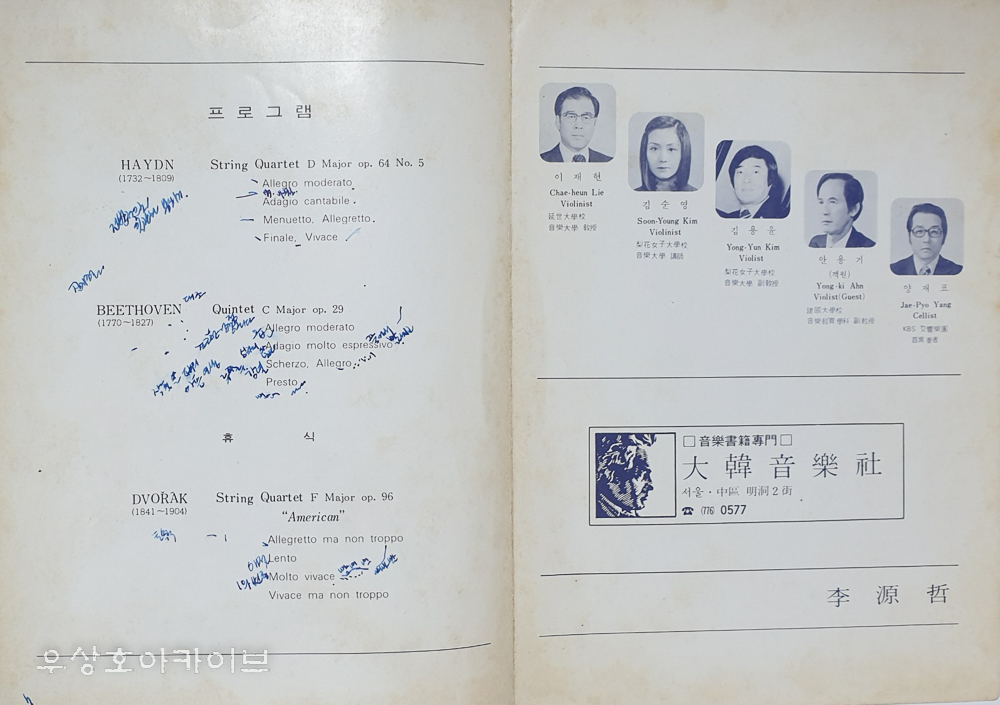 프로그램
HAYDN String Quartet D Major op. 64 No. 5
(1732~1809)
Allegro moderato
Adagio cantabile
Menuetto, Allegretto
Finale, Vivace
BEETHOVEN Quintet C Major op. 29
(1770~1827)
Allegro moderato
Adagio molto espressivo
Scherzo, Allegro
Presto
휴 식
DVOŘAK String Quartet F Major op. 96
(1841~1904)
"American"
Allegretto ma non troppo
Lento
Molto vivace
Vivace ma non troppo
우상호아카이브
이재현
Chae-heun Lie
Violinist
延世大學校
音樂大學 敎授
김순영
Soon-Young Kim
Violinist
梨花女子大學校
音樂大學 講師
김용윤
Yong-Yun Kim
Violist
梨花女子大學校
音樂大學 副敎授
안용기
(객원)
Yong-ki Ahn
Violist(Guest)
建國大學校
音樂敎育學科 副敎授
양재표
Jae-Pyo Yang
Cellist
KBS 交響樂團
首席奏者
□音樂書籍專門□
大韓音樂社
서울・中區 明洞2街
☎ (776) 0577
李源哲